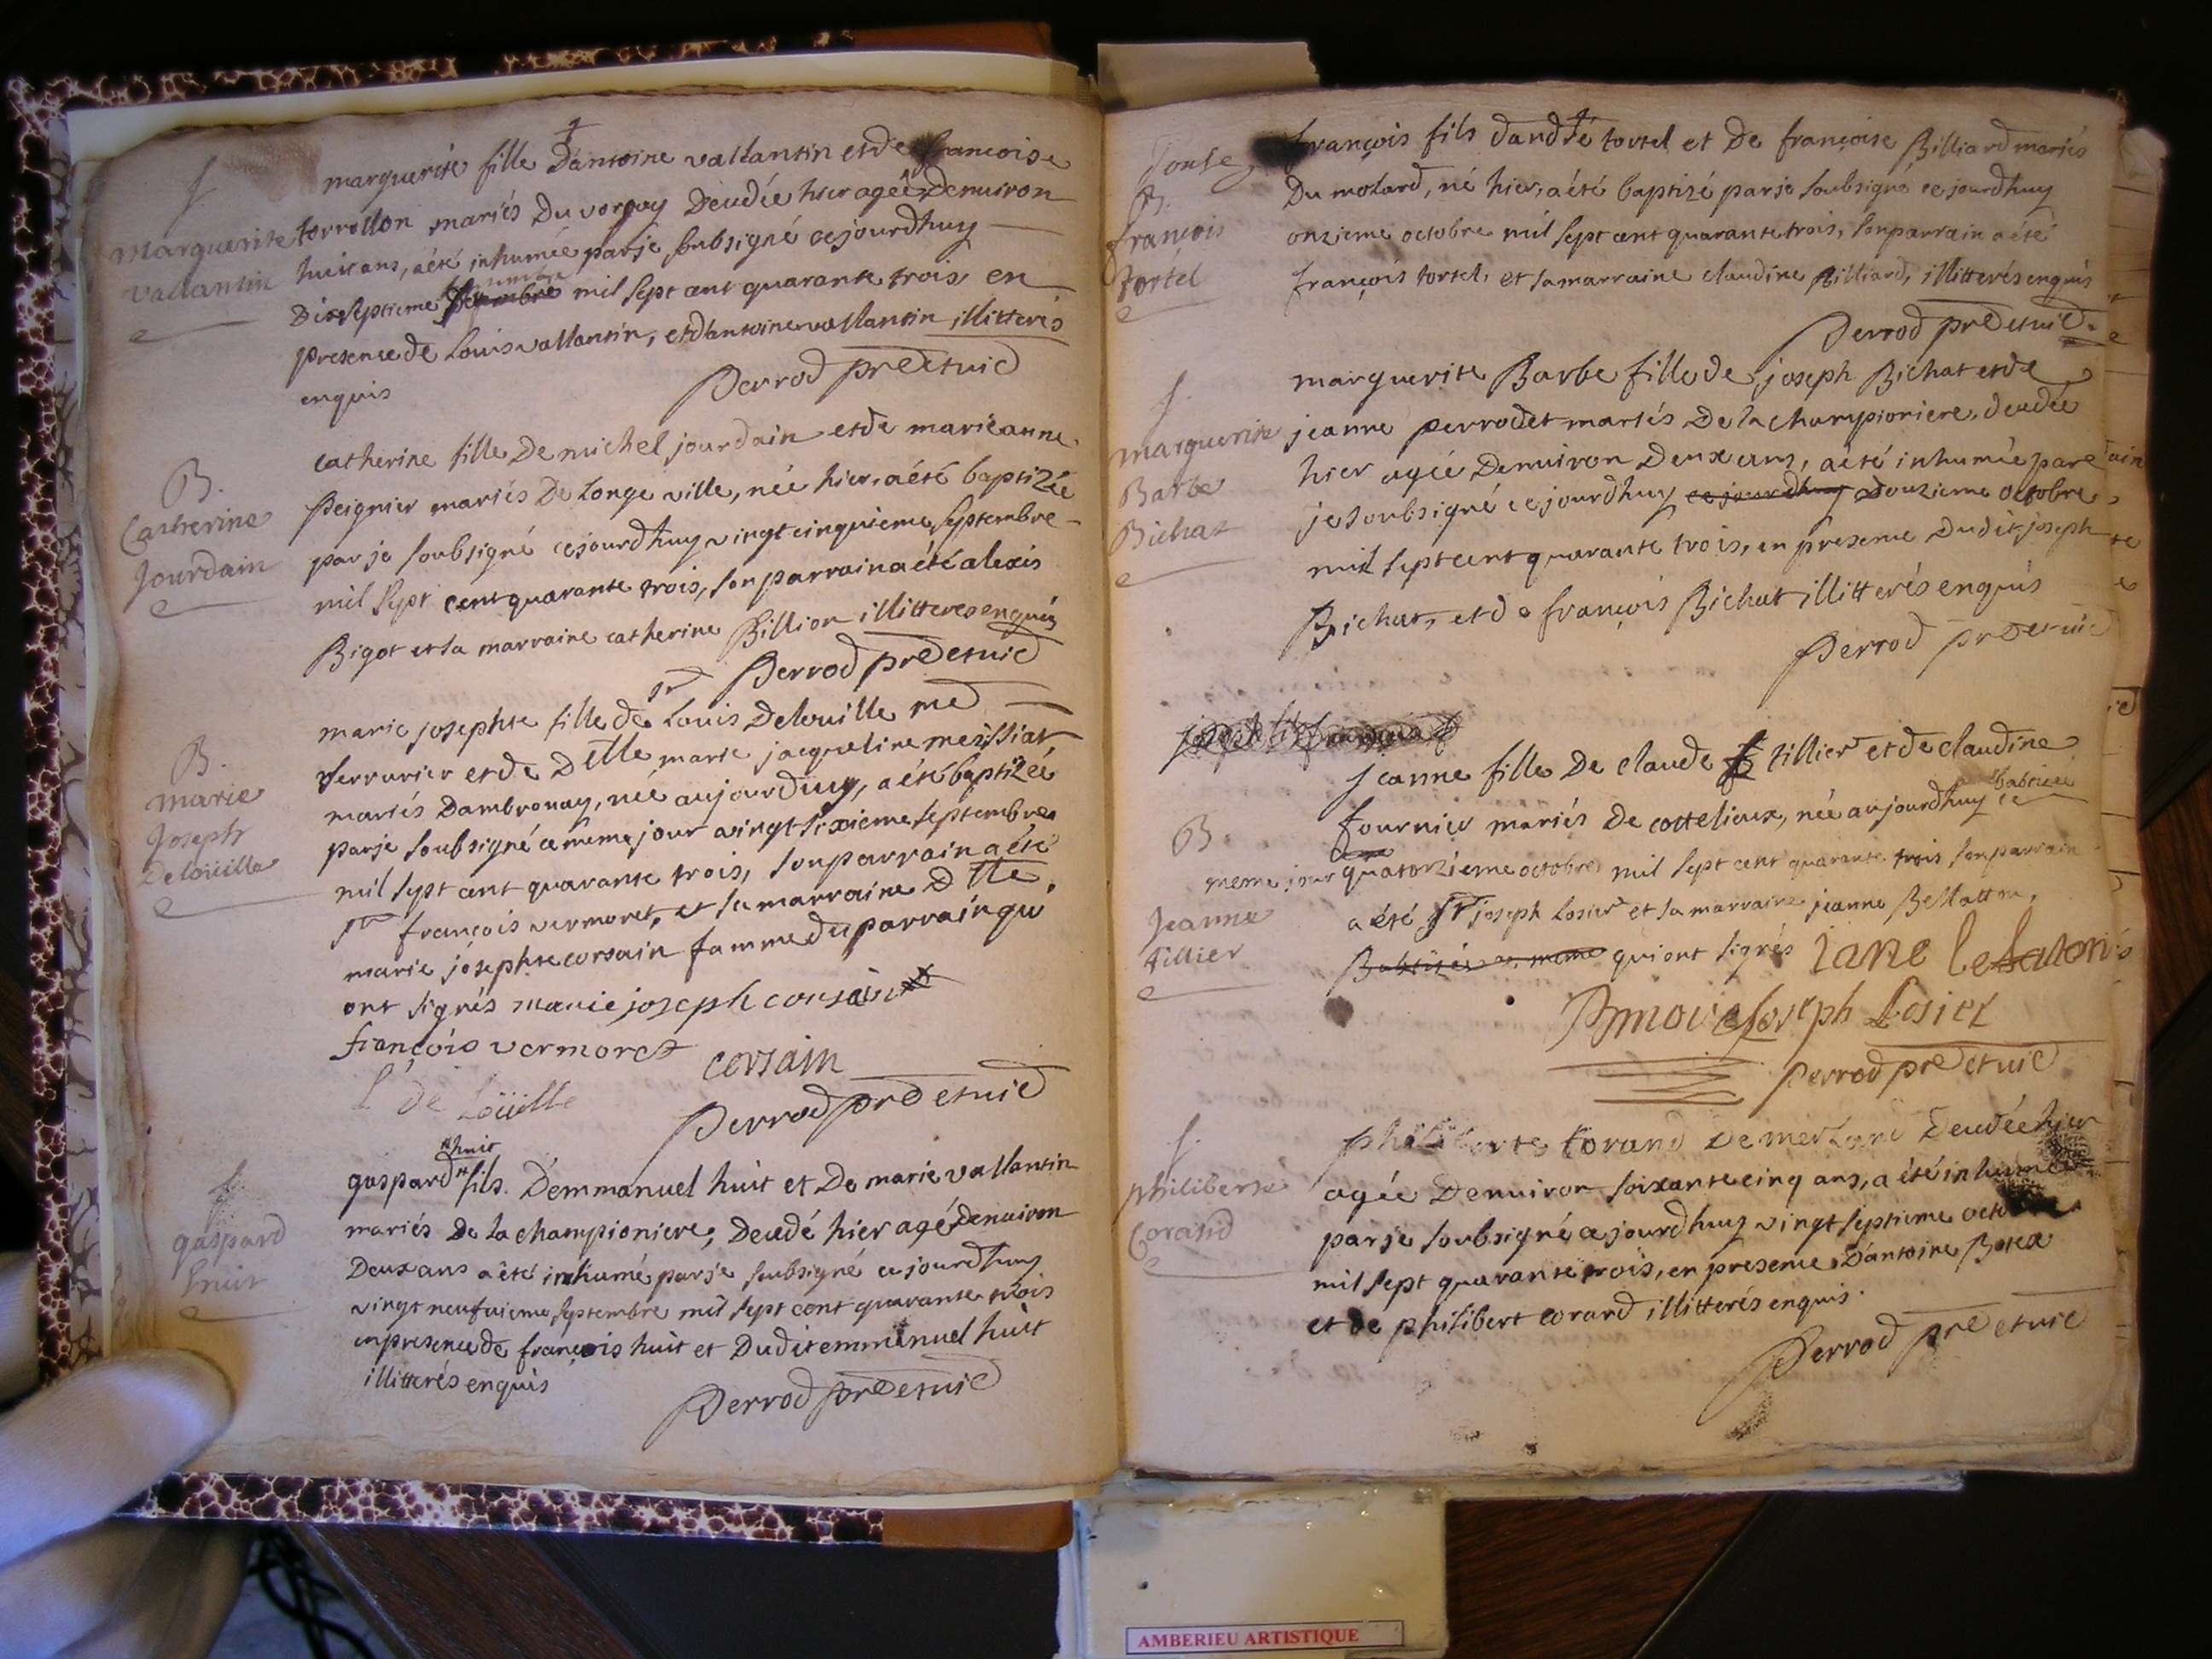 f
marguerite
vallantin
marguerite fille Dantoine vallantin et de francoise
torrillon mariés Du vorgey Decedée hier agée Denviron
huit ans, a été inhumée par je soubsigné ce jourdhuy
Dixseptieme septembre mil sept cent quarante trois en
presence de Louis vallantin, et dantoine vallantin illitterés
enquis
Perrod pre et vic
B.
Catherine
Jourdain
catherine fille De michel jourdain et de marieanne
Peignier mariés De Longe ville, née hier, a été baptizée
par je soubsigné ce jourdhuy vingt cinquieme septembre
mil sept cent quarante trois, son parrain a été alexis
Bigot et sa marraine catherine Billion illitteres enquis
Perrod pre et vic
B.
marie
Joseph
Deloüille
marie josephte fille de sr Louis Delouille me
serrurier et de Dlle marie jacqueline messiat
mariés Dambronay, née aujourduy, a été baptizée
par je soubsigné ce meme jour vingt sixieme septembre
mil sept cent quarante trois, son parrain a été
sr françois vermoret, et sa marraine Dlle
marie josephte corsain famme du parrain qui
ont signés marie joseph corsain
françois vermoret corsain
L de Loüille
Perrod pre et vic
f.
gaspard
huit
gaspard huit fils. Demmanuel huit et De marie vallantin
mariés De la championiere, Decedé hier agé Denviron
Deux ans a été inhumé par je soubsigné ce jourdhuy
vingt neufvieme septembre mil sept cent quarante trois
en presence de françois huit et Dudit emmanuel huit
illitterés enquis
Perrod pre et vic
B.
françois
tortel
françois fils dandré tortel et De françoise Billiard mariés
Du molard, né hier, a été baptizé par je soubsigné ce jourdhuy
onzieme octobre mil sept cent quarante trois, son parrain a été
françois tortel, et sa marraine claudine Billiard, illitterés enquis
Perrod pre et vic.
f.
marguerite
Barbe
Bichat
marguerite Barbe fille de joseph Bichat et de
jeanne perrodet mariés De la championiere, decedée
hier agée Denviron Deux ans, a été inhumée par
je soubsigné ce jourdhuy ce jourdhuy douzieme octobre
mil sept cent quarante trois, en presence Dudit joseph
Bichat, et de françois Bichat illitterés enquis
Perrod pre et vic
B.
Jeanne
tillier
jeanne fille De claude tillier et de claudine
fournier mariés De cottelieux, née aujourdhuy batizée ce
meme jour quatorzieme octobre mil sept cent quarante trois son parrain
a été sr joseph Losier et sa marraine jeanne Bellatton,
Babtizée ce meme qui ont signés
joseph Losier
Perrod pre et vic
f.
philiberte
Corand
philiberte Corand De merland Decedée hier
agée Denviron soixante cinq ans, a été inhumée
par je soubsigné ce jourdhuy vingt septieme octobre
mil sept quarante trois, en presence Dantoine Botex
et de philibert corard illitterés enquis.
Perrod pre et vic
AMBERIEU ARTISTIQUE